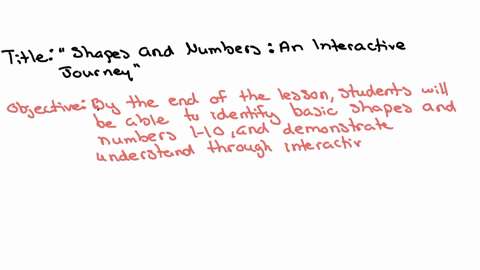 Title: "Shapes and Numbers: An Interactive
Journey"
Objective: By the end of the lesson, students will
be able to identify basic shapes and
numbers 1-10, and demonstrate
understand through interactiv